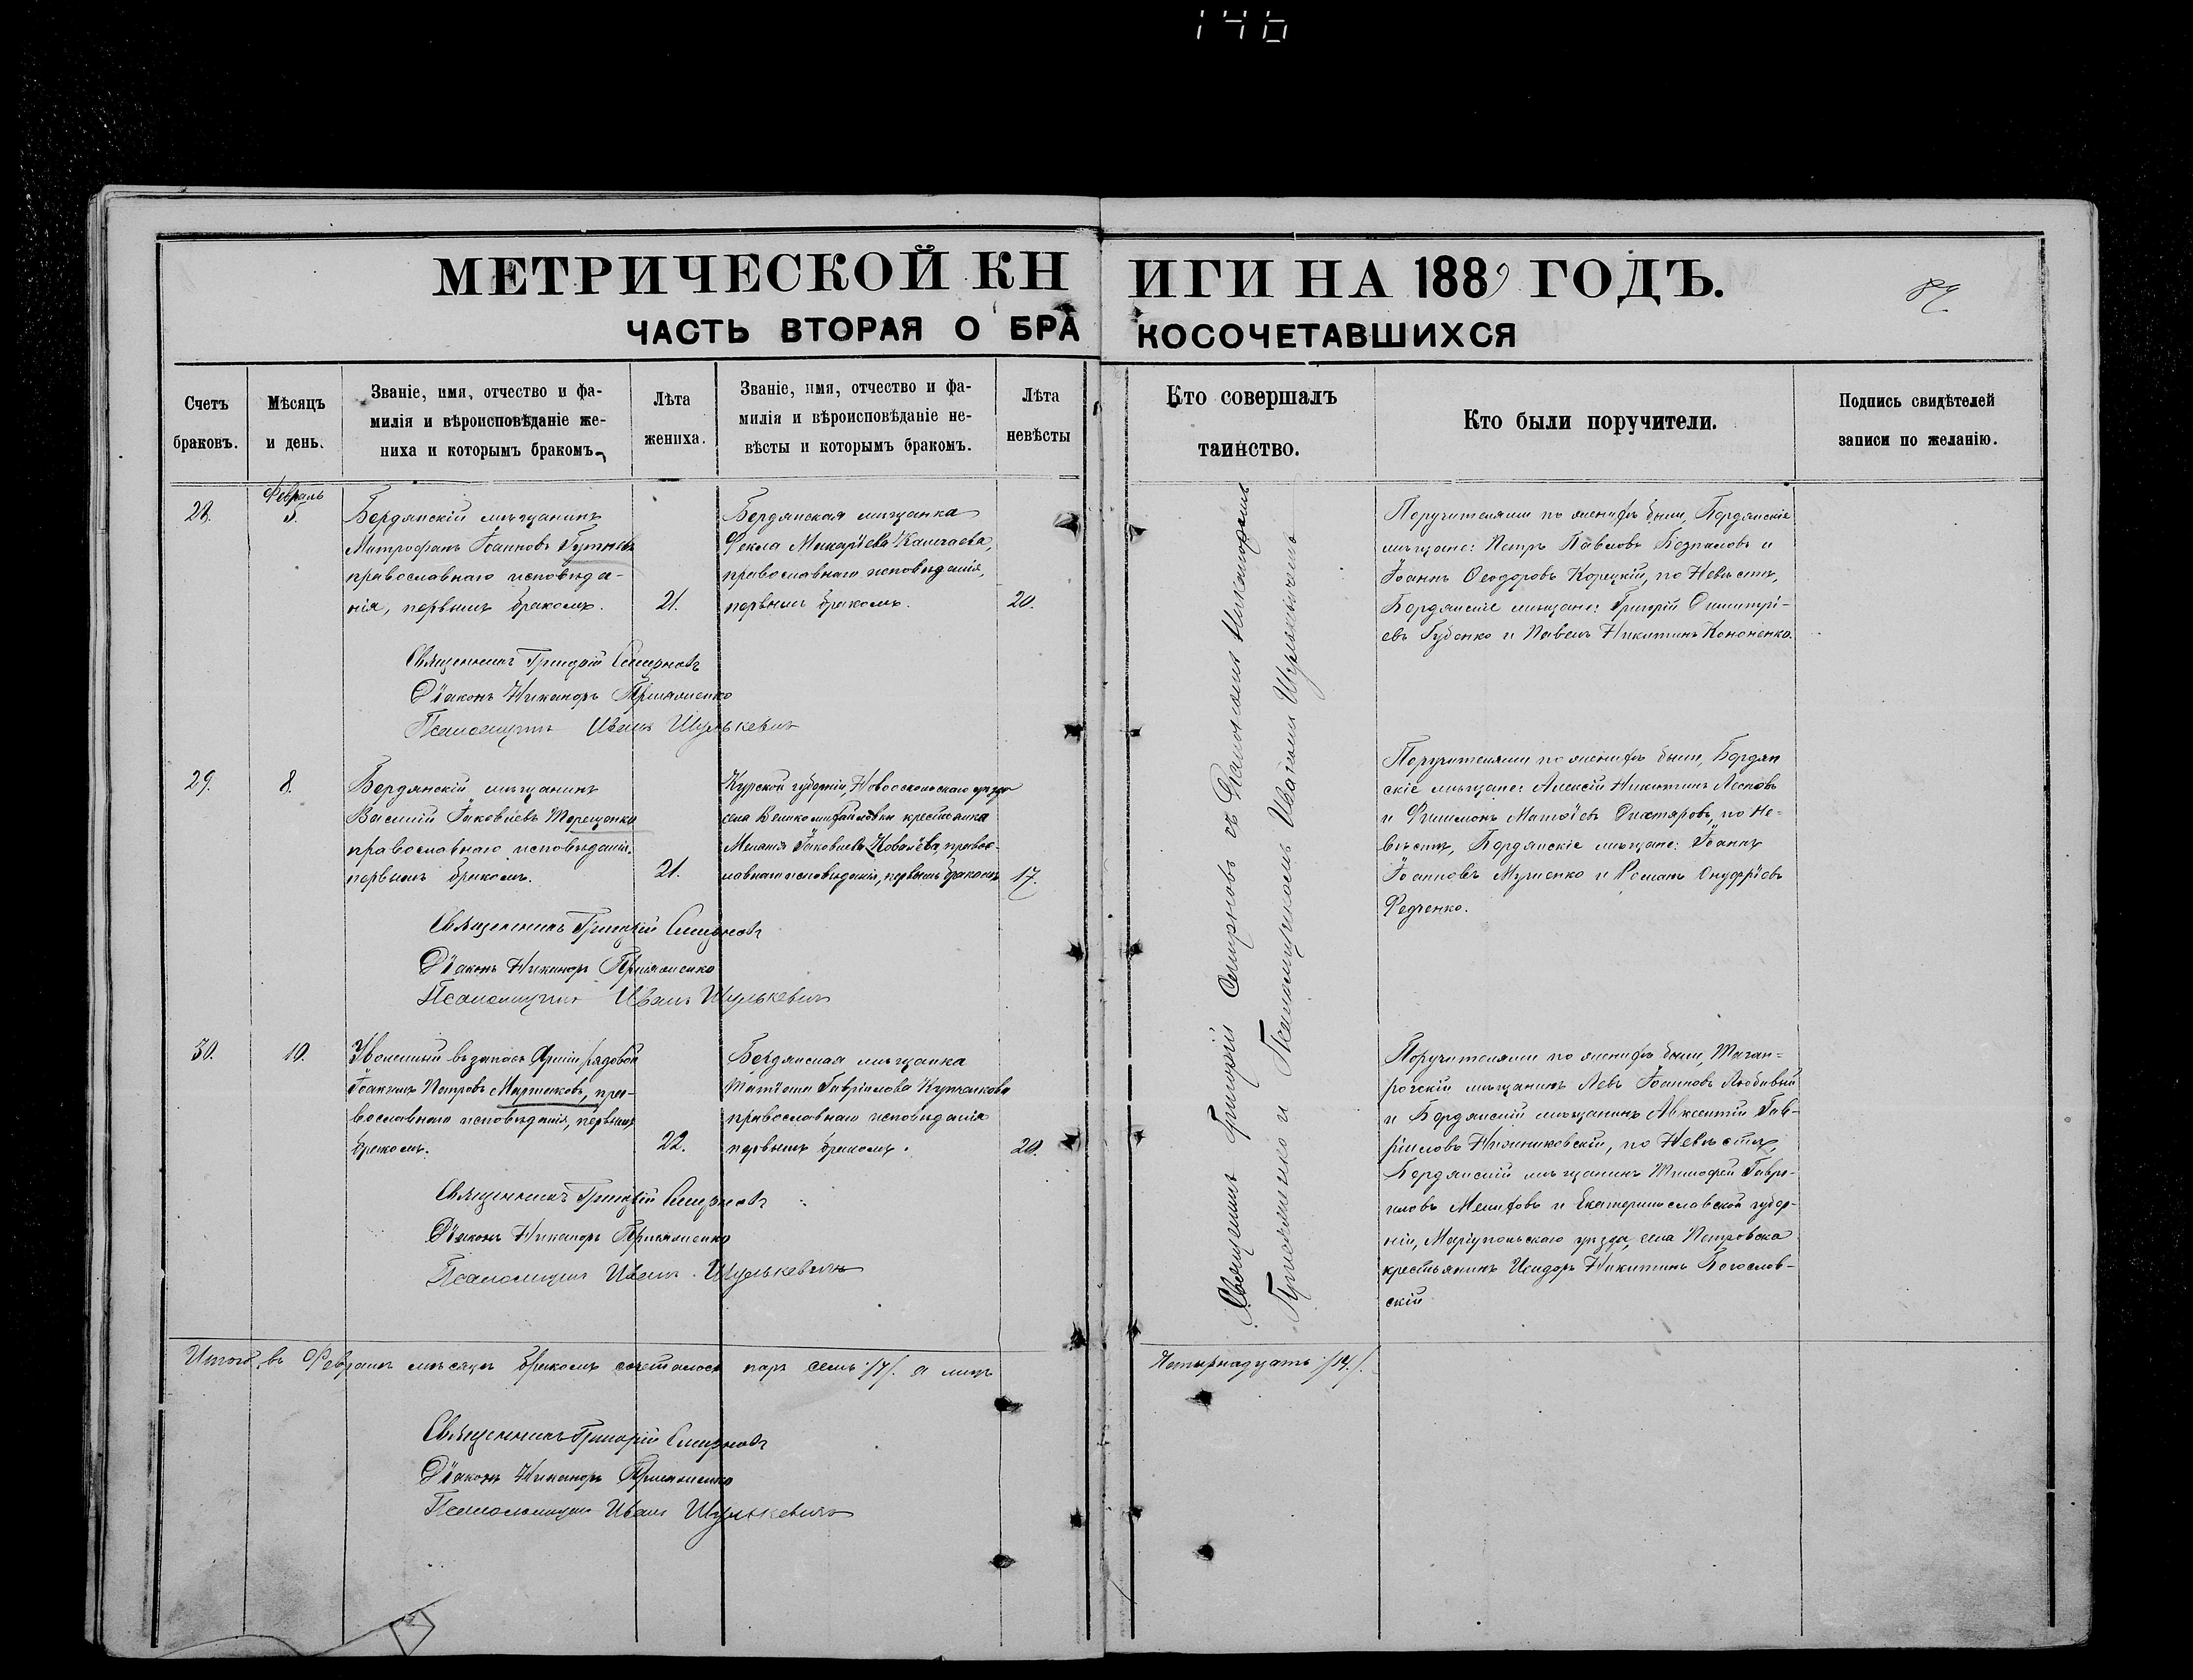 146
МЕТРИЧЕСКОЙ КНИГИ НА 1889 ГОДЪ.
ЧАСТЬ ВТОРАЯ О БРАКОСОЧЕТАВШИХСЯ
Счетъ
браковъ.
Мѣсяцъ
и день.
Званіе, имя, отчество и фа-
милія и вѣроисповѣданіе же-
ниха и которымъ бракомъ.
Лѣта
жениха.
Званіе, имя, отчество и фа-
милія и вѣроисповѣданіе не-
вѣсты и которымъ бракомъ.
Лѣта
невѣсты
Кто совершалъ
таинство.
Кто были поручители.
Подпись свидѣтелей
записи по желанію.
28.
Февраль
5.
Бердянскій мѣщанинъ
Митрофанъ Іоанновъ
православнаго исповѣда-
нія, первымъ бракомъ.
21.
Бердянская мѣщанка
Ѳекла Макаріева
православнаго исповѣданія,
первымъ бракомъ.
20.
Поручителями по женихѣ были, Бердянскіе
мѣщане: Петръ Павловъ Безпаловъ и
Іоаннъ Ѳеодоровъ Корецкій, по Невѣстѣ,
Бердянскіе мѣщане: Григорій Димитрі-
евъ Губенко и Павелъ Никитинъ Кононенко.
Священникъ Григорій Смирновъ
Діаконъ Никаноръ
Псаломщикъ Иванъ Шулькевичъ
29.
8.
Бердянскій мѣщанинъ
Василій Іаковлевъ Терещенко
православнаго исповѣданія,
первымъ бракомъ.
21.
Курской губерніи, Новооскольскаго уѣзда
села Великомихайловки крестьянка
Меланія Іаковлева Ковалёва, правос-
лавнаго исповѣданія, первымъ бракомъ
17.
Поручителями по женихѣ были, Бердян
скіе мѣщане: Алексій Никитинъ Лесновъ
и Филимонъ Матѳіевъ Дихтяровъ, по Не-
вѣстѣ, Бердянскіе мѣщане: Іоаннъ
Іоанновъ и Романъ Онуфріевъ
Редченко.
Священникъ Григорій Смирновъ
Діаконъ Никаноръ
Псаломщикъ Иванъ Шулькевичъ
30.
10.
Уволенный въ запасъ Арміи рядовой
Іоаннъ Петровъ Мартыновъ, пра-
вославнаго исповѣданія, первымъ
бракомъ.
22.
Бердянская мѣщанка
Татіана Гавріилова
православнаго исповѣданія
первымъ бракомъ.
20.
Поручителями по женихѣ были, Таган-
рогскій мѣщанинъ Левъ Іоанновъ
и Бердянскій мѣщанинъ Авксентій Гав-
ріиловъ по Невѣстѣ,
Бердянскій мѣщанинъ Тимофей Гаврі-
иловъ и Екатеринославской губер-
ніи, Маріупольскаго уѣзда, села Петровска
крестьянинъ Исидоръ Никитинъ Богослов-
скій
Священникъ Григорій Смирновъ
Діаконъ Никаноръ
Псаломщикъ Иванъ Шулькевичъ
Священникъ Григорій Смирновъ съ Діакономъ Никаноромъ
и Псаломщикомъ Иваномъ Шулькевичемъ
Итого, въ Февралѣ мѣсяцѣ бракомъ сочеталось паръ семь /7/. а лицъ
Четырнадцать /14/.
Священникъ Григорій Смирновъ
Діаконъ Никаноръ
Псаломщикъ Иванъ Шулькевичъ